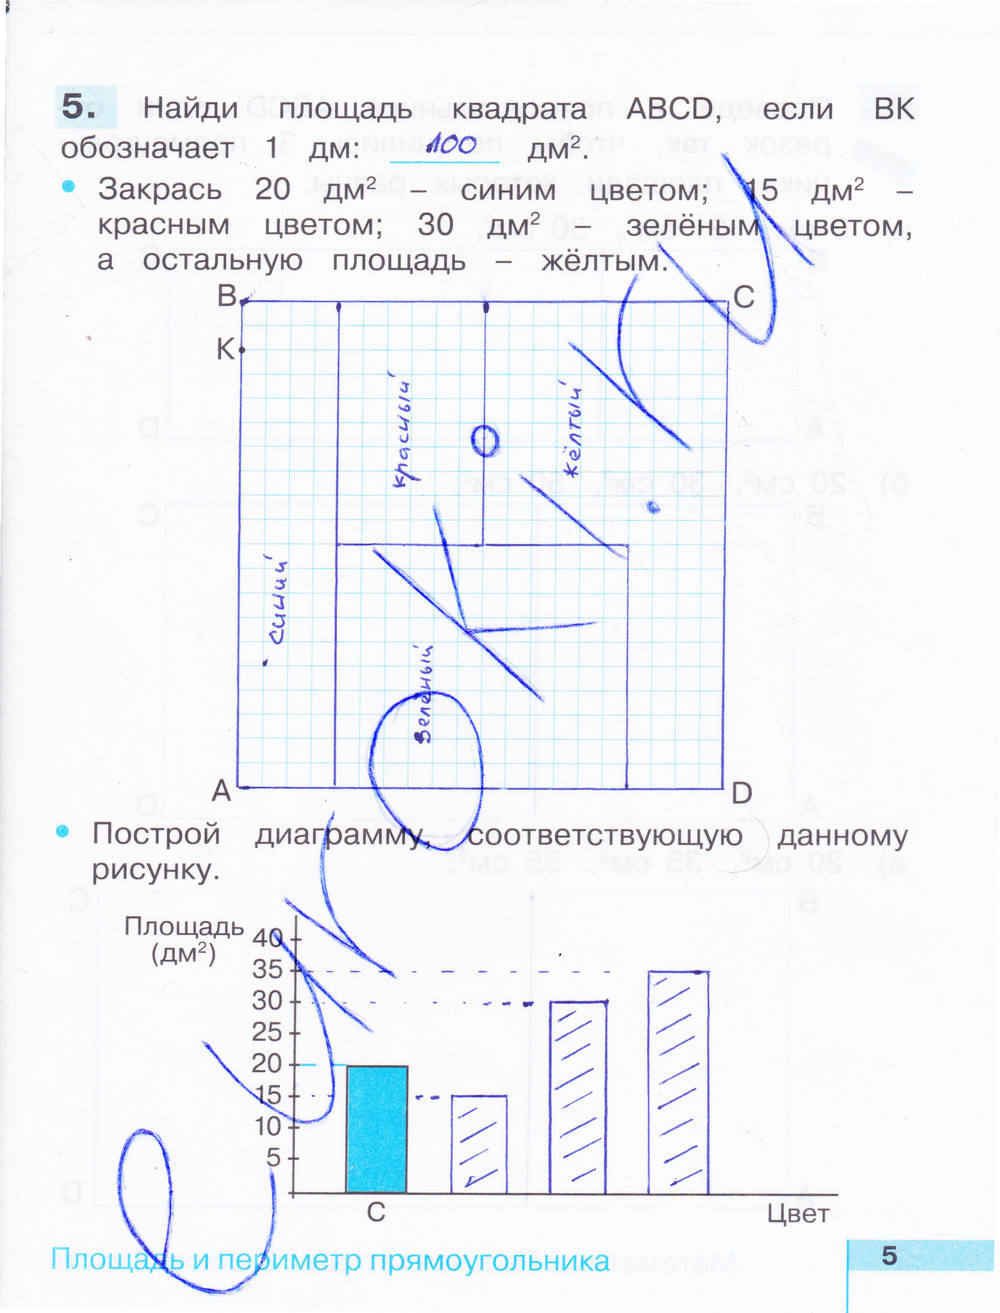 5. Найди площадь квадрата ABCD, если BK
обозначает 1 дм: 100 дм².
• Закрась 20 дм² – синим цветом; 15 дм² –
красным цветом; 30 дм² – зелёным цветом,
а остальную площадь – жёлтым.
B
C
K
красный
жёлтый
синий
зелёный
A
D
• Построй диаграмму, соответствующую данному
рисунку.
Площадь
(дм²)
40
35
30
25
20
15
10
5
С
Цвет
Площадь и периметр прямоугольника
5